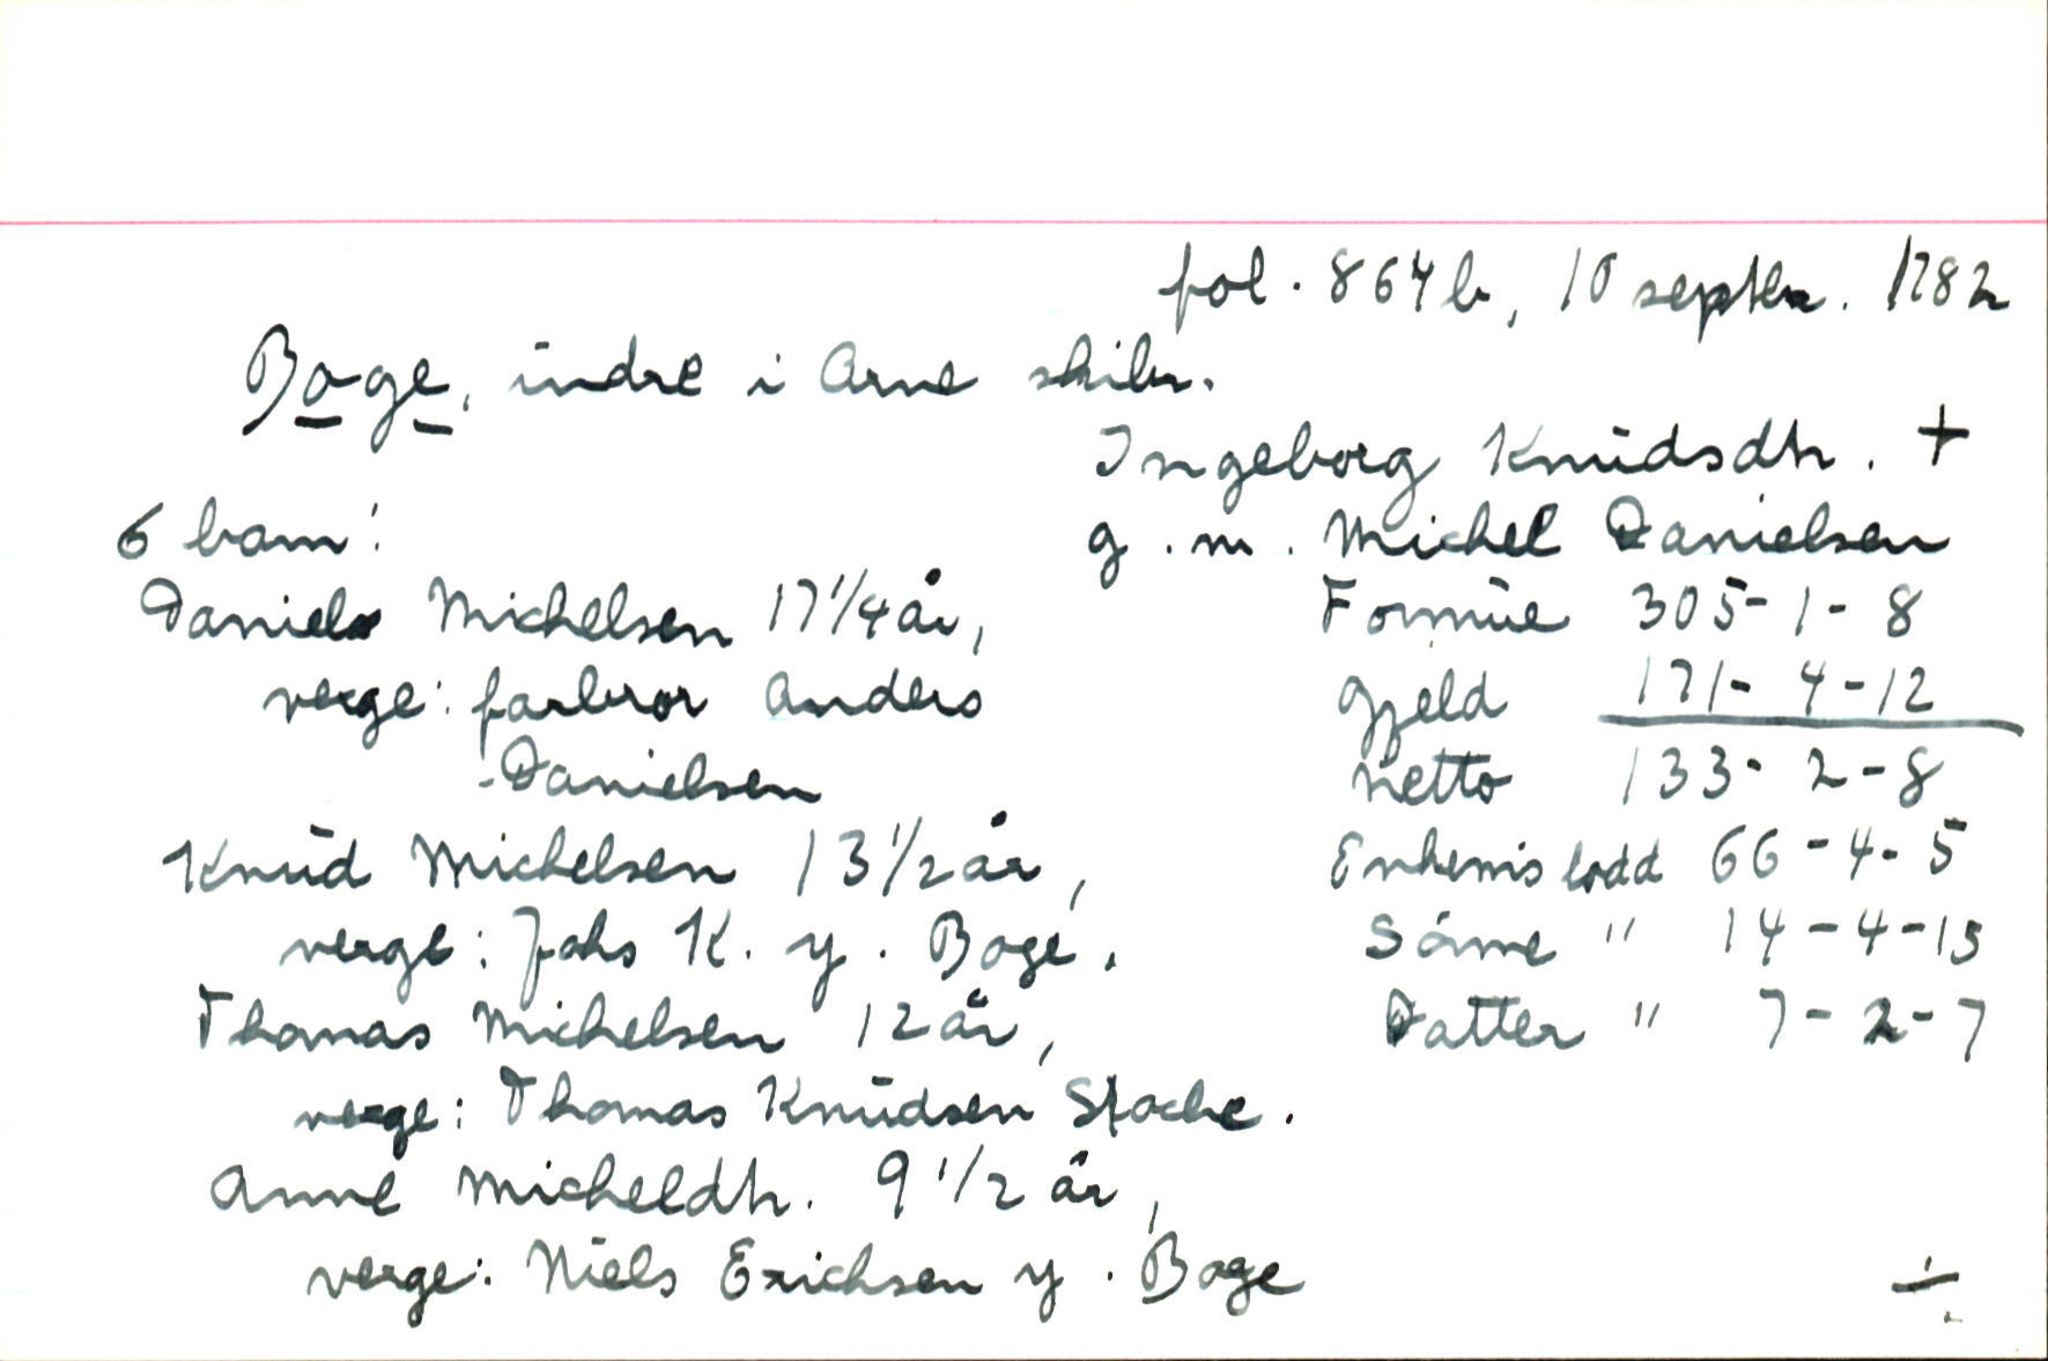 fol. 864b, 10 septbr. 1782
Boge, indre i Arne skibr.
Ingeborg Knudsdtr. +
g.m. Michel Danielsen
Formue 305-1-8
Gjeld 171-4-12
Netto 133-2-8
Enkem's lodd 66-4-5
Sønne " 14-4-15
Datter " 7-2-7
6 barn:
Daniel Michelsen 17 1/4 år,
verge: farbror Anders
Danielsen
Knud Michelsen 13 1/2 år,
verge: Johs K. y. Boge.
Thomas Michelsen 12 år,
verge: Thomas Knudsen Stache.
Anne Micheldtr. 9 1/2 år,
verge: Niels Erichsen y. Boge
÷